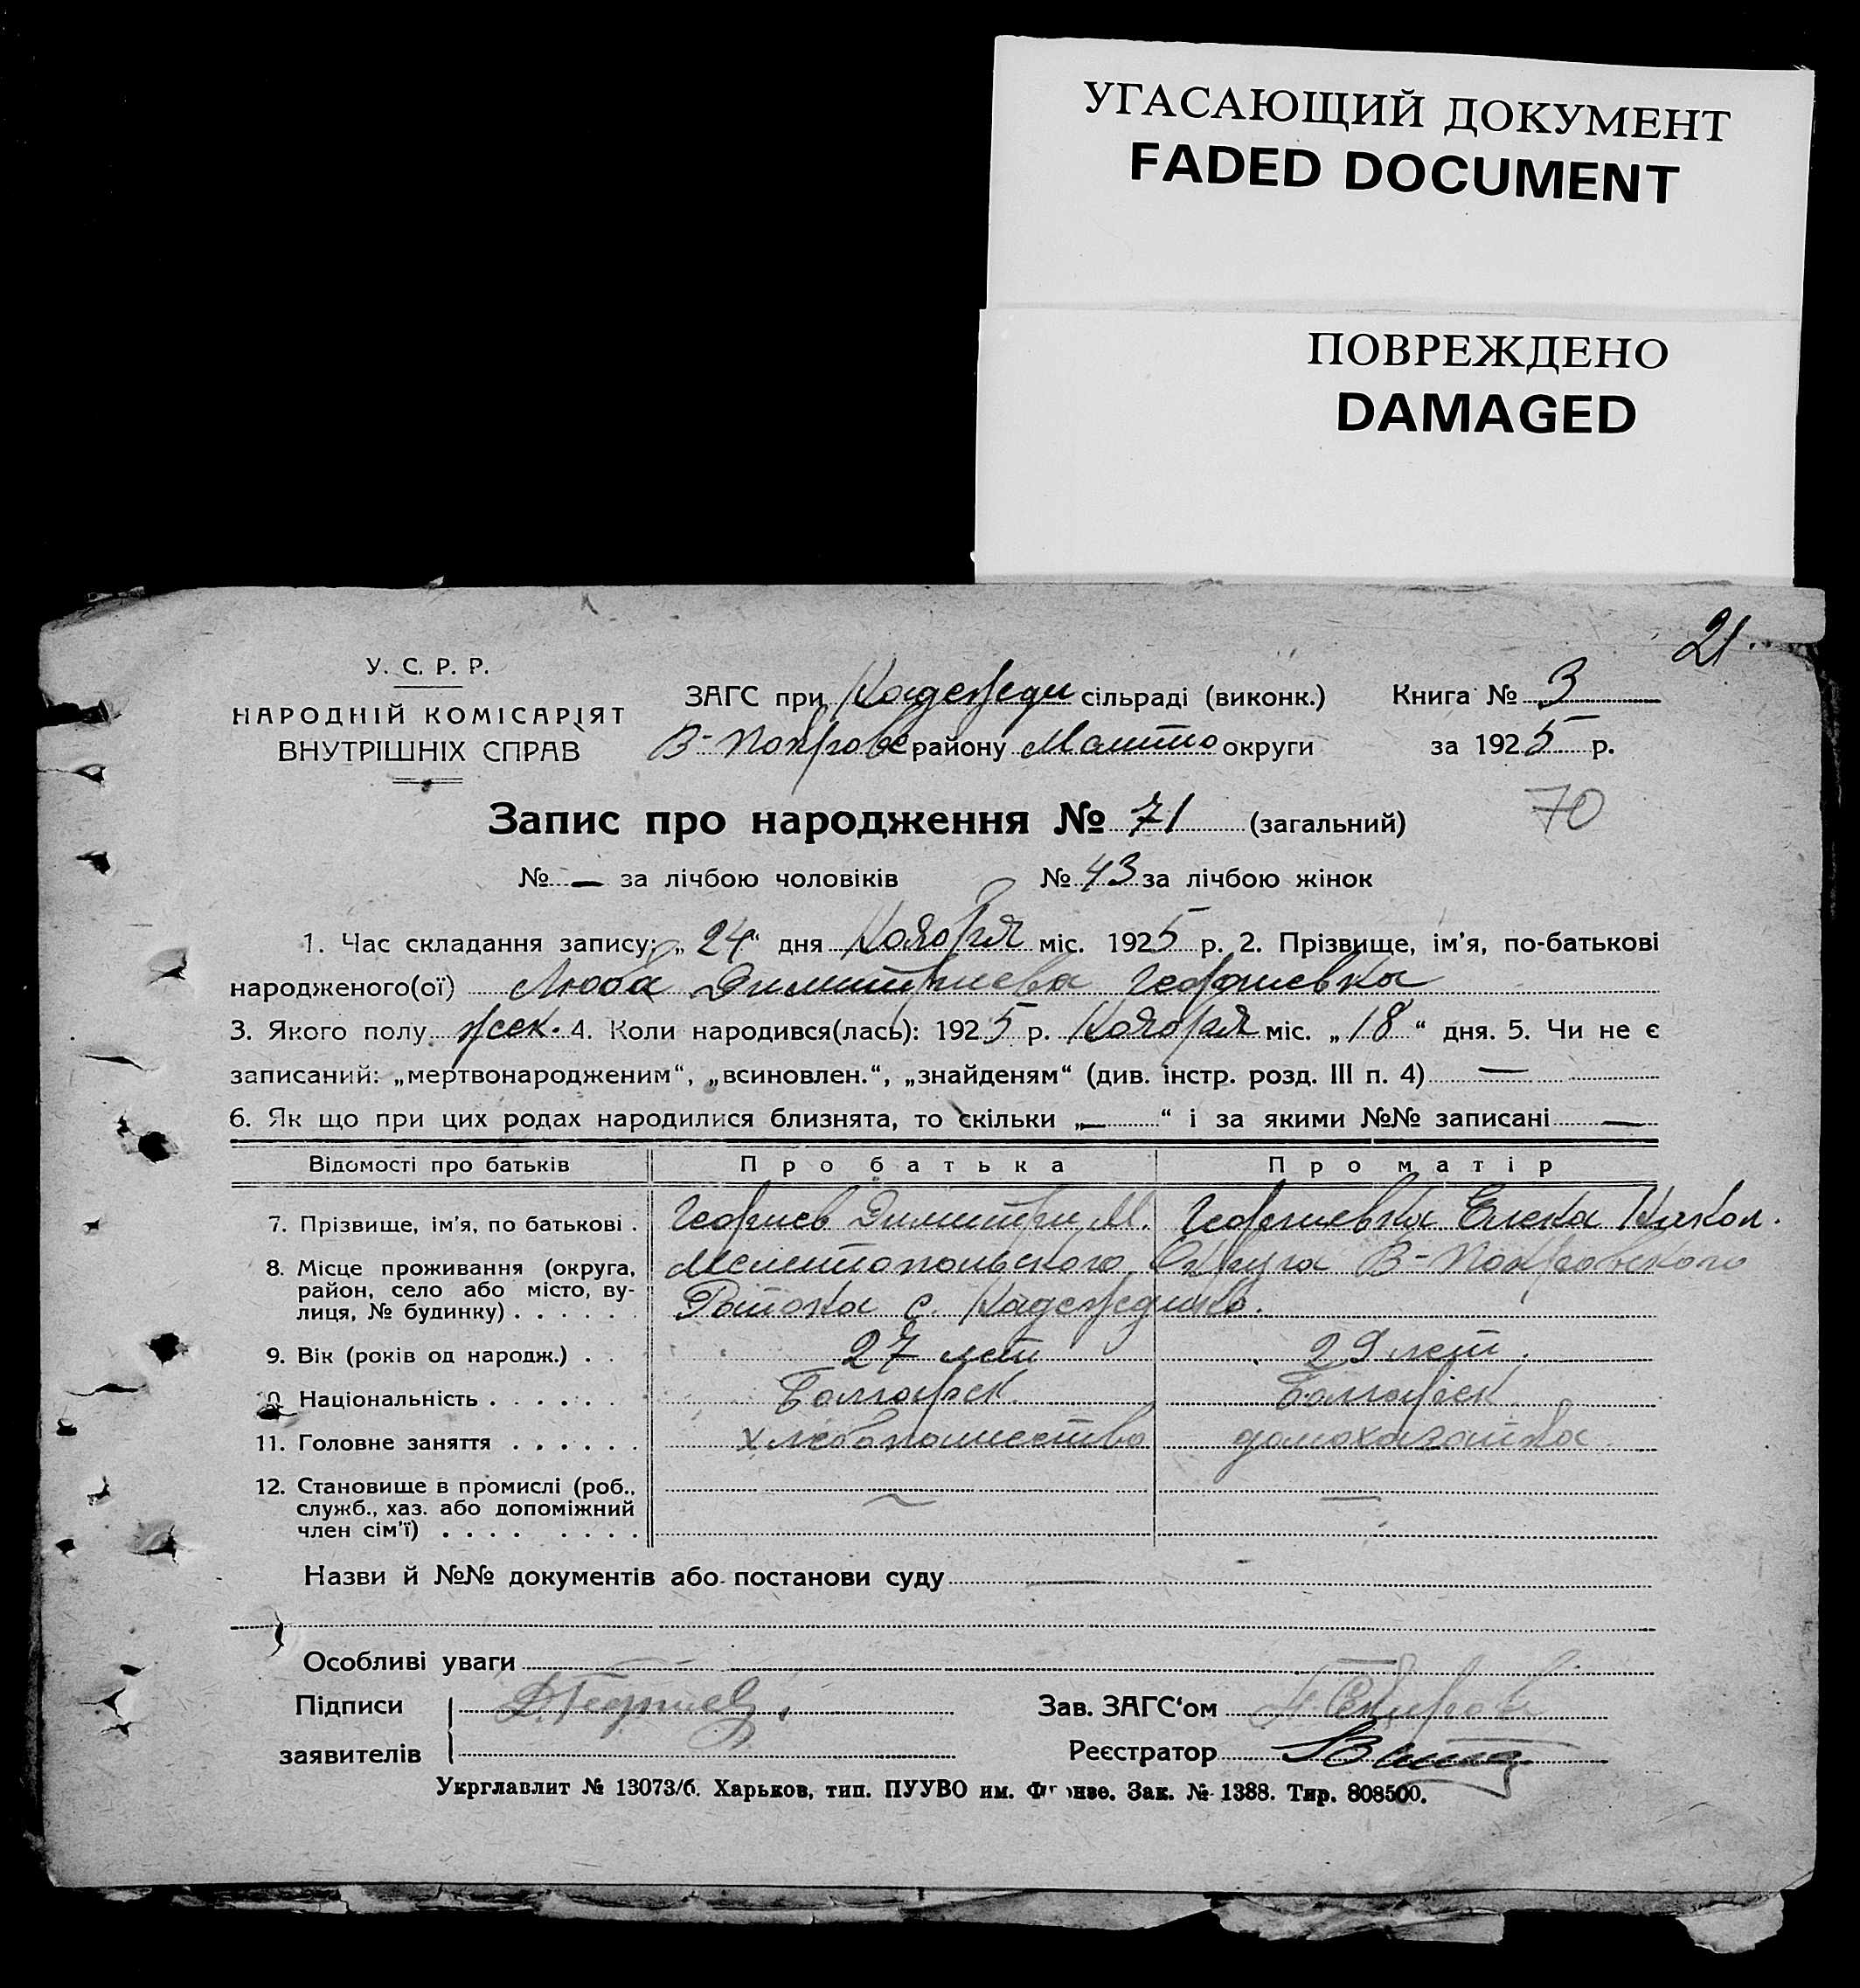 УГАСАЮЩИЙ ДОКУМЕНТ
FADED DOCUMENT
ПОВРЕЖДЕНО
DAMAGED
21.
У. С. Р. Р.
НАРОДНІЙ КОМІСАРІЯТ
ВНУТРІШНІХ СПРАВ
ЗАГС при Надежди сільраді (виконк.) Книга № 3
В-Покров району Мелито округи за 1925 р.
Запис про народження № 71 (загальний) 70
№ — за лічбою чоловіків № 43 за лічбою жінок
1. Час складання запису: „ 24 “ дня Ноября міс. 1925 р. 2. Прізвище, ім’я, по-батькові
народженого(ої) Люба Димитриева Георгиевна
3. Якого полу жен. 4. Коли народився(лась): 1925 р. Ноября міс. „ 18 “ дня. 5. Чи не є
записаний: „мертвонародженим“, „всиновлен.“, „знайденям“ (див. інстр. розд. III п. 4) —
6. Як що при цих родах народилися близнята, то скільки „—“ і за якими №№ записані —
Відомості про батьків Про батька Про матір
7. Прізвище, ім’я, по батькові . Георгиев Димитри М. Георгиевна Елена Никол.
8. Місце проживання (округа, Мелитопольского Округа В-Покровского
район, село або місто, ву-
лиця, № будинку) . . . . . . Района с. Надеждино.
9. Вік (років од народж.) . . 27 лет 29 лет.
Національність . . . . . . Болгарск. Болгарск.
11. Головне заняття . . . . . . хлебопашество домохазайка
12. Становище в промислі (роб., — —
служб., хаз. або допоміжний
член сім’ї) . . . . . . . .
Назви й №№ документів або постанови суду —
Особливі уваги
Підписи Д. Георгиев. Зав. ЗАГС‘ом
заявителів Реєстратор
Укрглавлит № 13073/б. Харьков, тип. ПУУВО им. Фрунзе. Зак. № 1388. Тир. 808500.